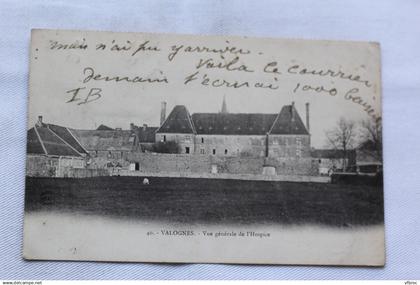 mais n'ai pu y arriver
Voila le courrier
demain t'écrirai 1000 bai
IB
40. - VALOGNES. - Vue générale de l'Hospice